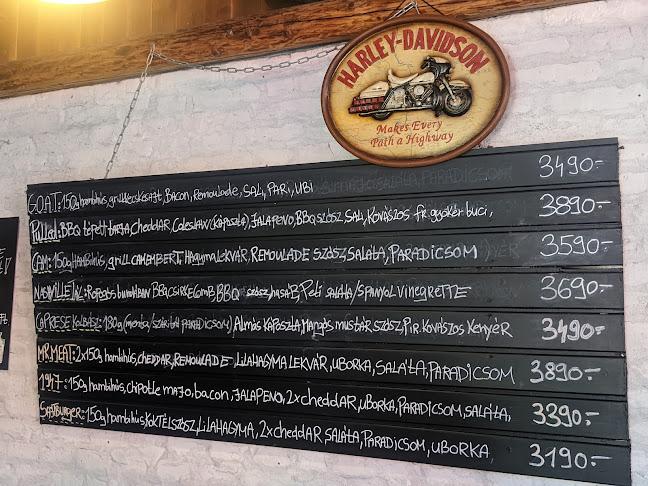 HARLEY-DAVIDSON
Makes Every
Path a Highway
G.O.A.T.: 150g hambihús, grill kecskesajt, Bacon, Remoulade, SALI, PARI, UBI 3490.-
Pulled: BBQ tépett tarja, Cheddar, Coleslaw (káposzta), JALAPENO, BBQ szósz, SALI, KOVÁSZOS fr. gyökér buci, 3890.-
CAM: 150g HAMBIHÚS, grill CAMEMBERT, HAgymALekVÁR, REMOULADE SZÓSZ, SALÁTA, PARADICSOM 3590.-
NASHVILLE IN: Ropogós bundában BBQ csirkecomb, BBQ szósz, hasáb, Peti saláta/SPANYOL vinegrette 3690.-
CAPRESE KOLBÁSZ: 180g (menta/szárított PARADICSOM) Almás KÁPOSZTA, Mangós mustár szósz, Pir. Kovászos Kenyér 3490.-
MR. MEAT: 2x150g hambihús, CHEDDAR, REMOULADE, LILAHAGYMA LEKVÁR, UBORKA, SALÁTA, PARADICSOM 3890.-
1947: 150g hambihús, chipotle majo, bacon, JALAPENO, 2xcheddAR, UBORKA, PARADICSOM, SALÁTA, 3390.-
SAJTBURGER: 150g hambihús, KOKTÉLSZÓSZ, LILAHAGYMA, 2xcheddAR SALÁTA, PARADICSOM, UBORKA 3190.-